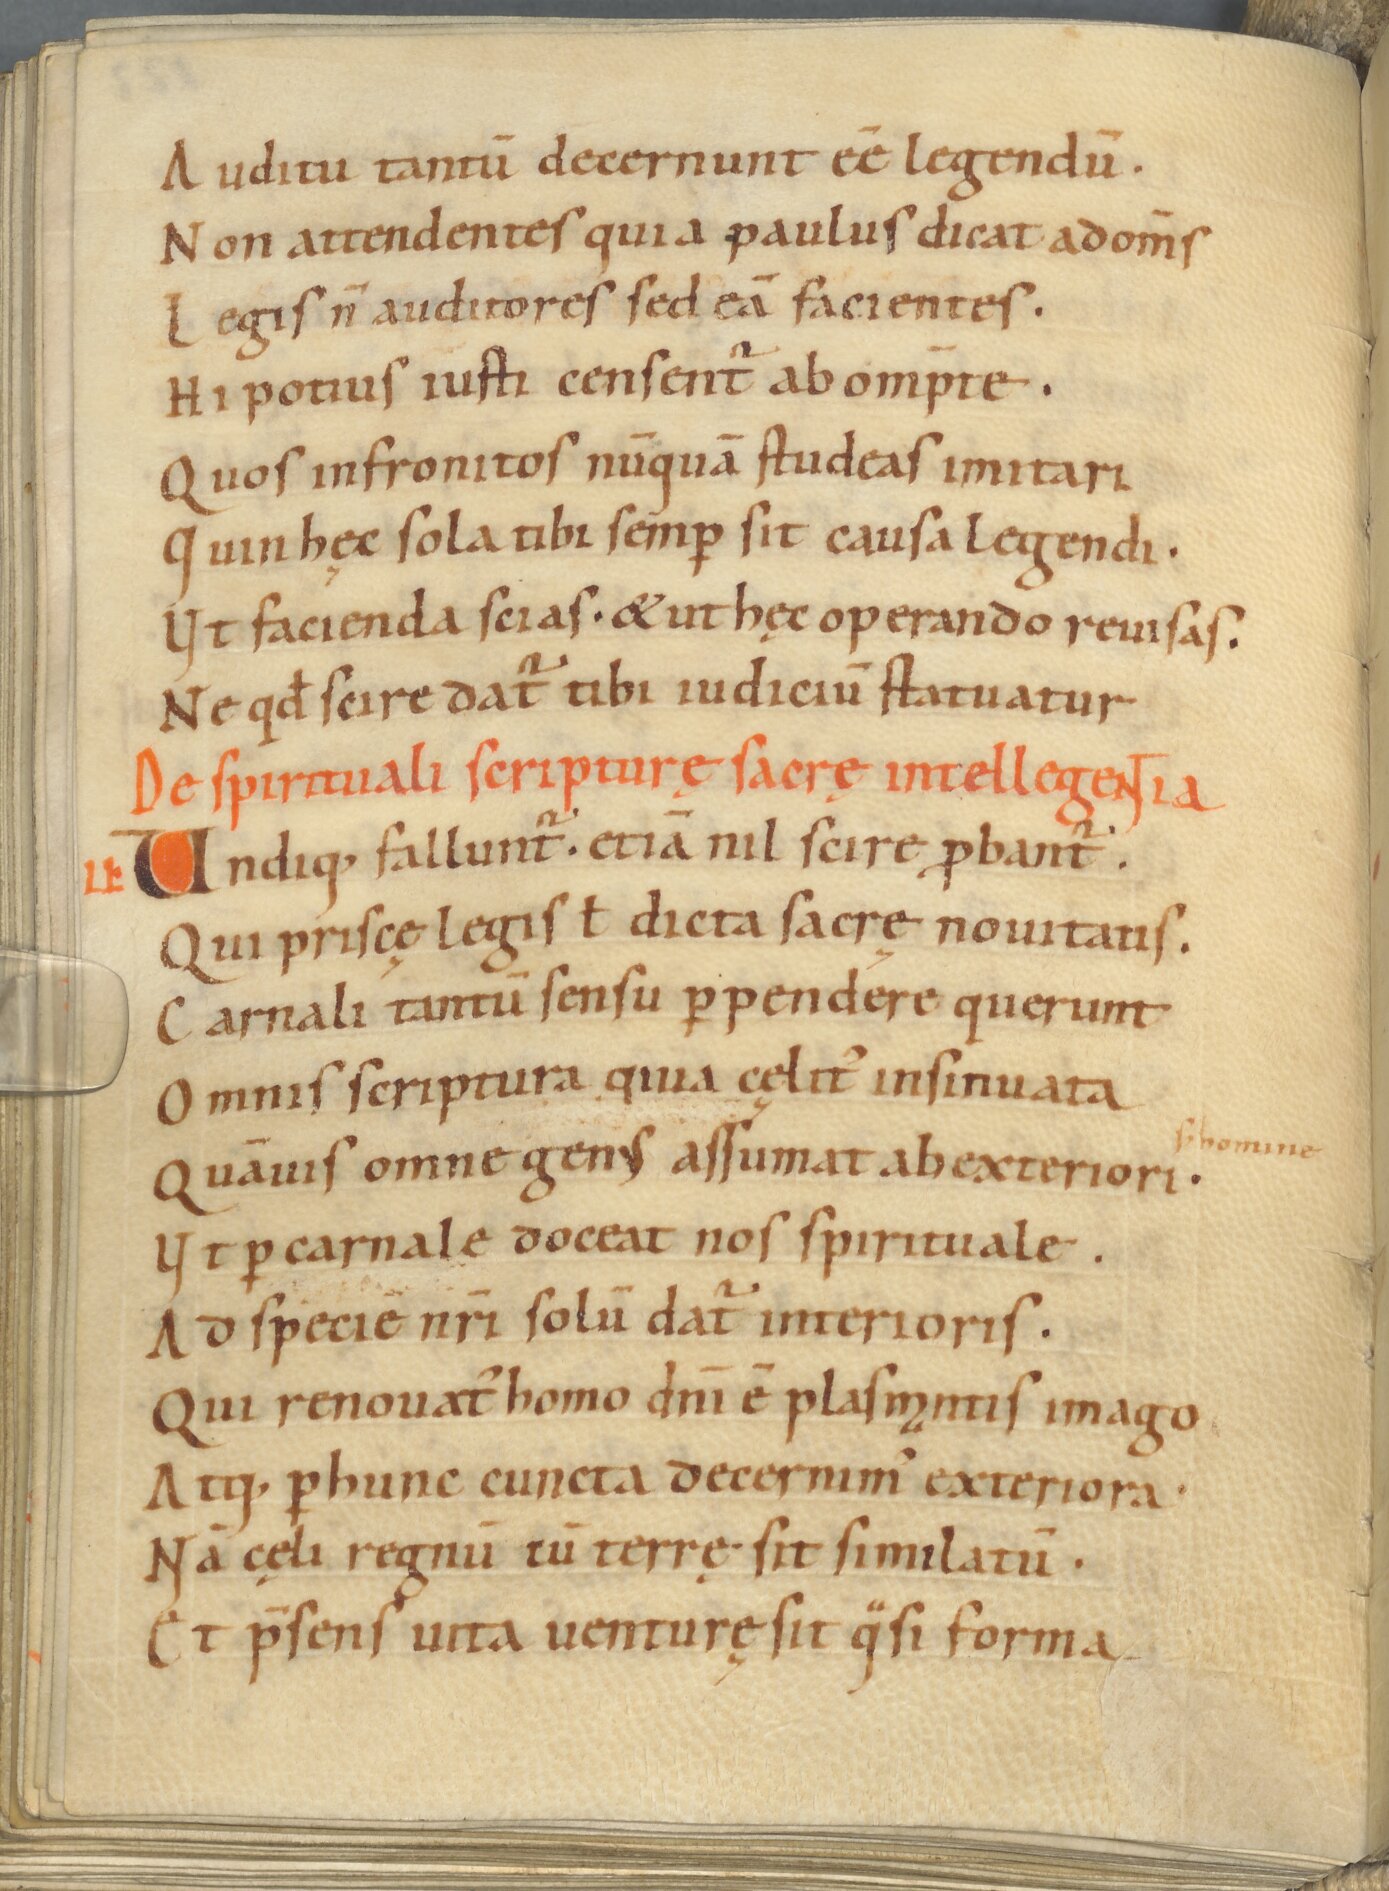 Auditu tantū decernunt eē legendū.
Non attendentes quia paulus dicat ad om̄s
Legis n̄ auditores sed eā facientes.
Hi potius iusti censent᷑ ab omp̄te.
Quos infronitos nūquā studeas imitari
Quin hęc sola tibi semꝑ sit causa legendi.
Vt facienda scias. & ut hęc operando reuisas.
Ne qđ scire dat᷑ tibi iudiciū statuatur
De spirituali scripturę sacrę intellegentia
Vndiq, fallunt᷑. etiā nil scire ꝓbant᷑.
Qui priscę legis ł dicta sacrę nouitatis.
Carnali tantū sensu ꝑpendere querunt
Omnis scriptura quia cęlit᾽ insinuata
Quāuis omne genus assumat ab exteriori.
s. homine
Vt ꝑ carnale doceat nos spirituale.
Ad speciē nr̄i solū dat᷑ interioris.
Qui renouat᾽ homo dn̄i ē plasmantis imago
Atq, ꝑ hunc cuncta decernim᾽ exteriora.
Nā cęli regnū tū terrę sit similatū.
Et p̄sens uita uenturę sit qͣsi forma